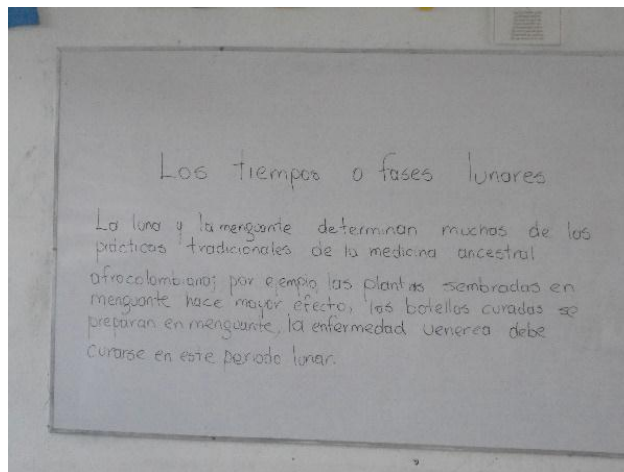 Los tiempos o fases lunares
La luna y la menguante determinan muchas de las
prácticas tradicionales de la medicina ancestral
afrocolombiana; por ejemplo, las plantas sembradas en
menguante hace mayor efecto, las botellas curadas se
preparan en menguante, la enfermedad venerea debe
curarse en este periodo lunar.